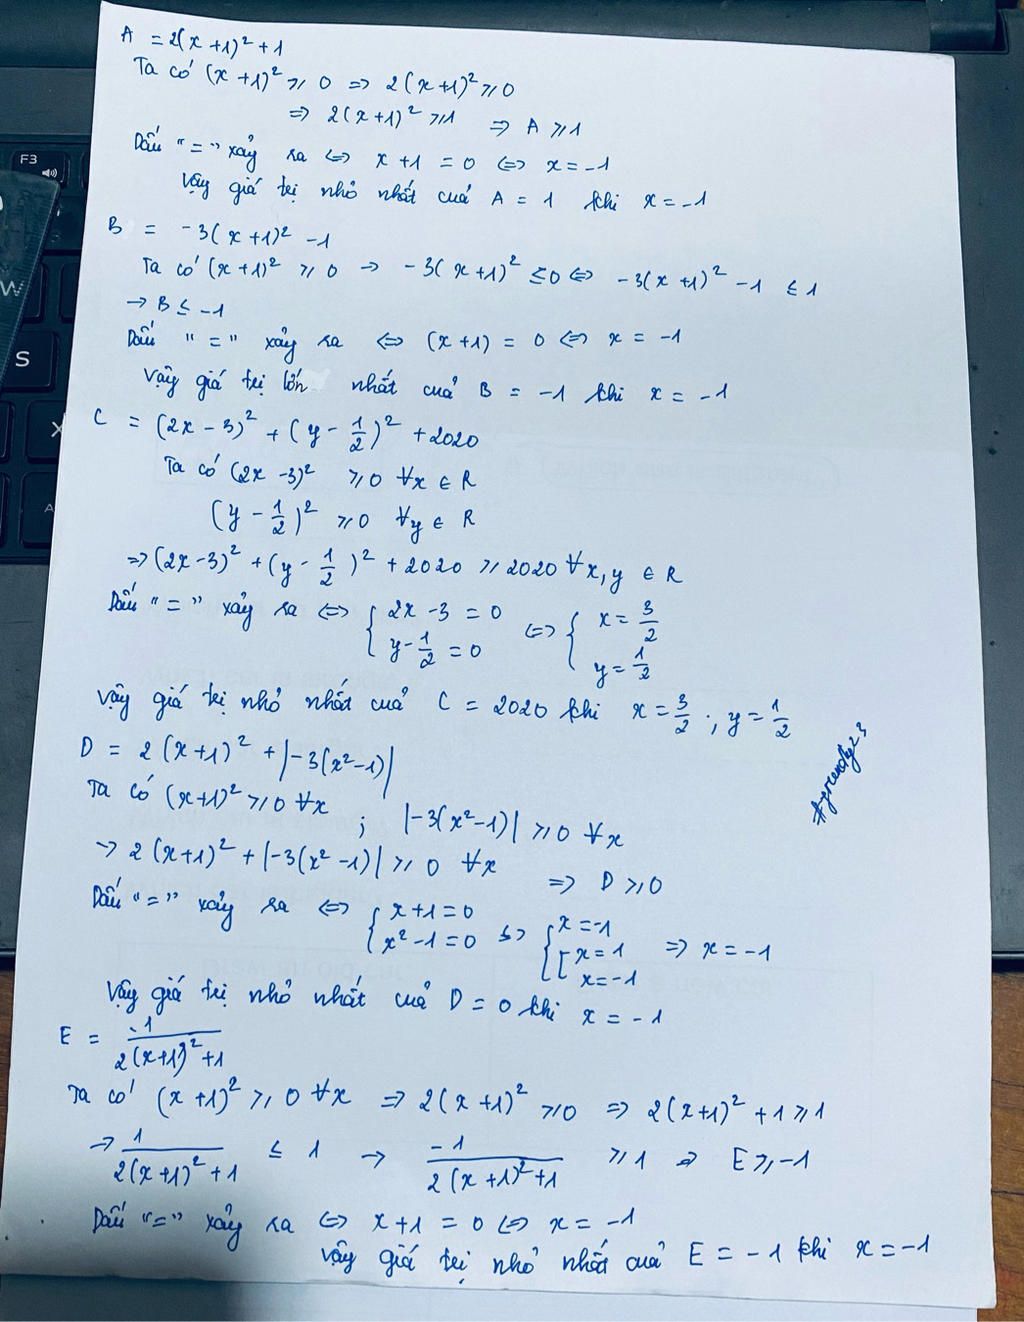 A = 2(x+1)² + 1
Ta có (x+1)² ≥ 0 => 2(x+1)² ≥ 0
=> 2(x+1)² ≥ 1 => A ≥ 1
Dấu "=" xảy ra <=> x + 1 = 0 <=> x = -1
Vậy giá trị nhỏ nhất của A = 1 khi x = -1
B = -3(x+1)² - 1
Ta có (x+1)² ≥ 0 → -3(x+1)² ≤ 0 <=> -3(x+1)² - 1 ≤ 1
→ B ≤ -1
Dấu "=" xảy ra <=> (x+1) = 0 <=> x = -1
Vậy giá trị lớn nhất của B = -1 khi x = -1
C = (2x-3)² + (y - 1/2)² + 2020
Ta có (2x-3)² ≥ 0 ∀x ∈ R
(y - 1/2)² ≥ 0 ∀y ∈ R
=> (2x-3)² + (y - 1/2)² + 2020 ≥ 2020 ∀x,y ∈ R
Dấu "=" xảy ra <=> { 2x - 3 = 0 <=> { x = 3/2
y - 1/2 = 0 y = 1/2
Vậy giá trị nhỏ nhất của C = 2020 khi x = 3/2 ; y = 1/2
D = 2(x+1)² + |-3(x²-1)|
Ta có (x+1)² ≥ 0 ∀x ; |-3(x²-1)| ≥ 0 ∀x
→ 2(x+1)² + |-3(x²-1)| ≥ 0 ∀x => D ≥ 0
Dấu "=" xảy ra <=> { x+1 = 0 <=> { x = -1 => x = -1
x² - 1 = 0 [ x = 1
x = -1
Vậy giá trị nhỏ nhất của D = 0 khi x = -1
E = -1/(2(x+1)² + 1)
Ta có (x+1)² ≥ 0 ∀x => 2(x+1)² ≥ 0 => 2(x+1)² + 1 ≥ 1
→ 1/(2(x+1)² + 1) ≤ 1 → -1/(2(x+1)² + 1) ≥ 1 => E ≥ -1
Dấu "=" xảy ra <=> x + 1 = 0 <=> x = -1
Vậy giá trị nhỏ nhất của E = -1 khi x = -1
F3
W
S
X
A